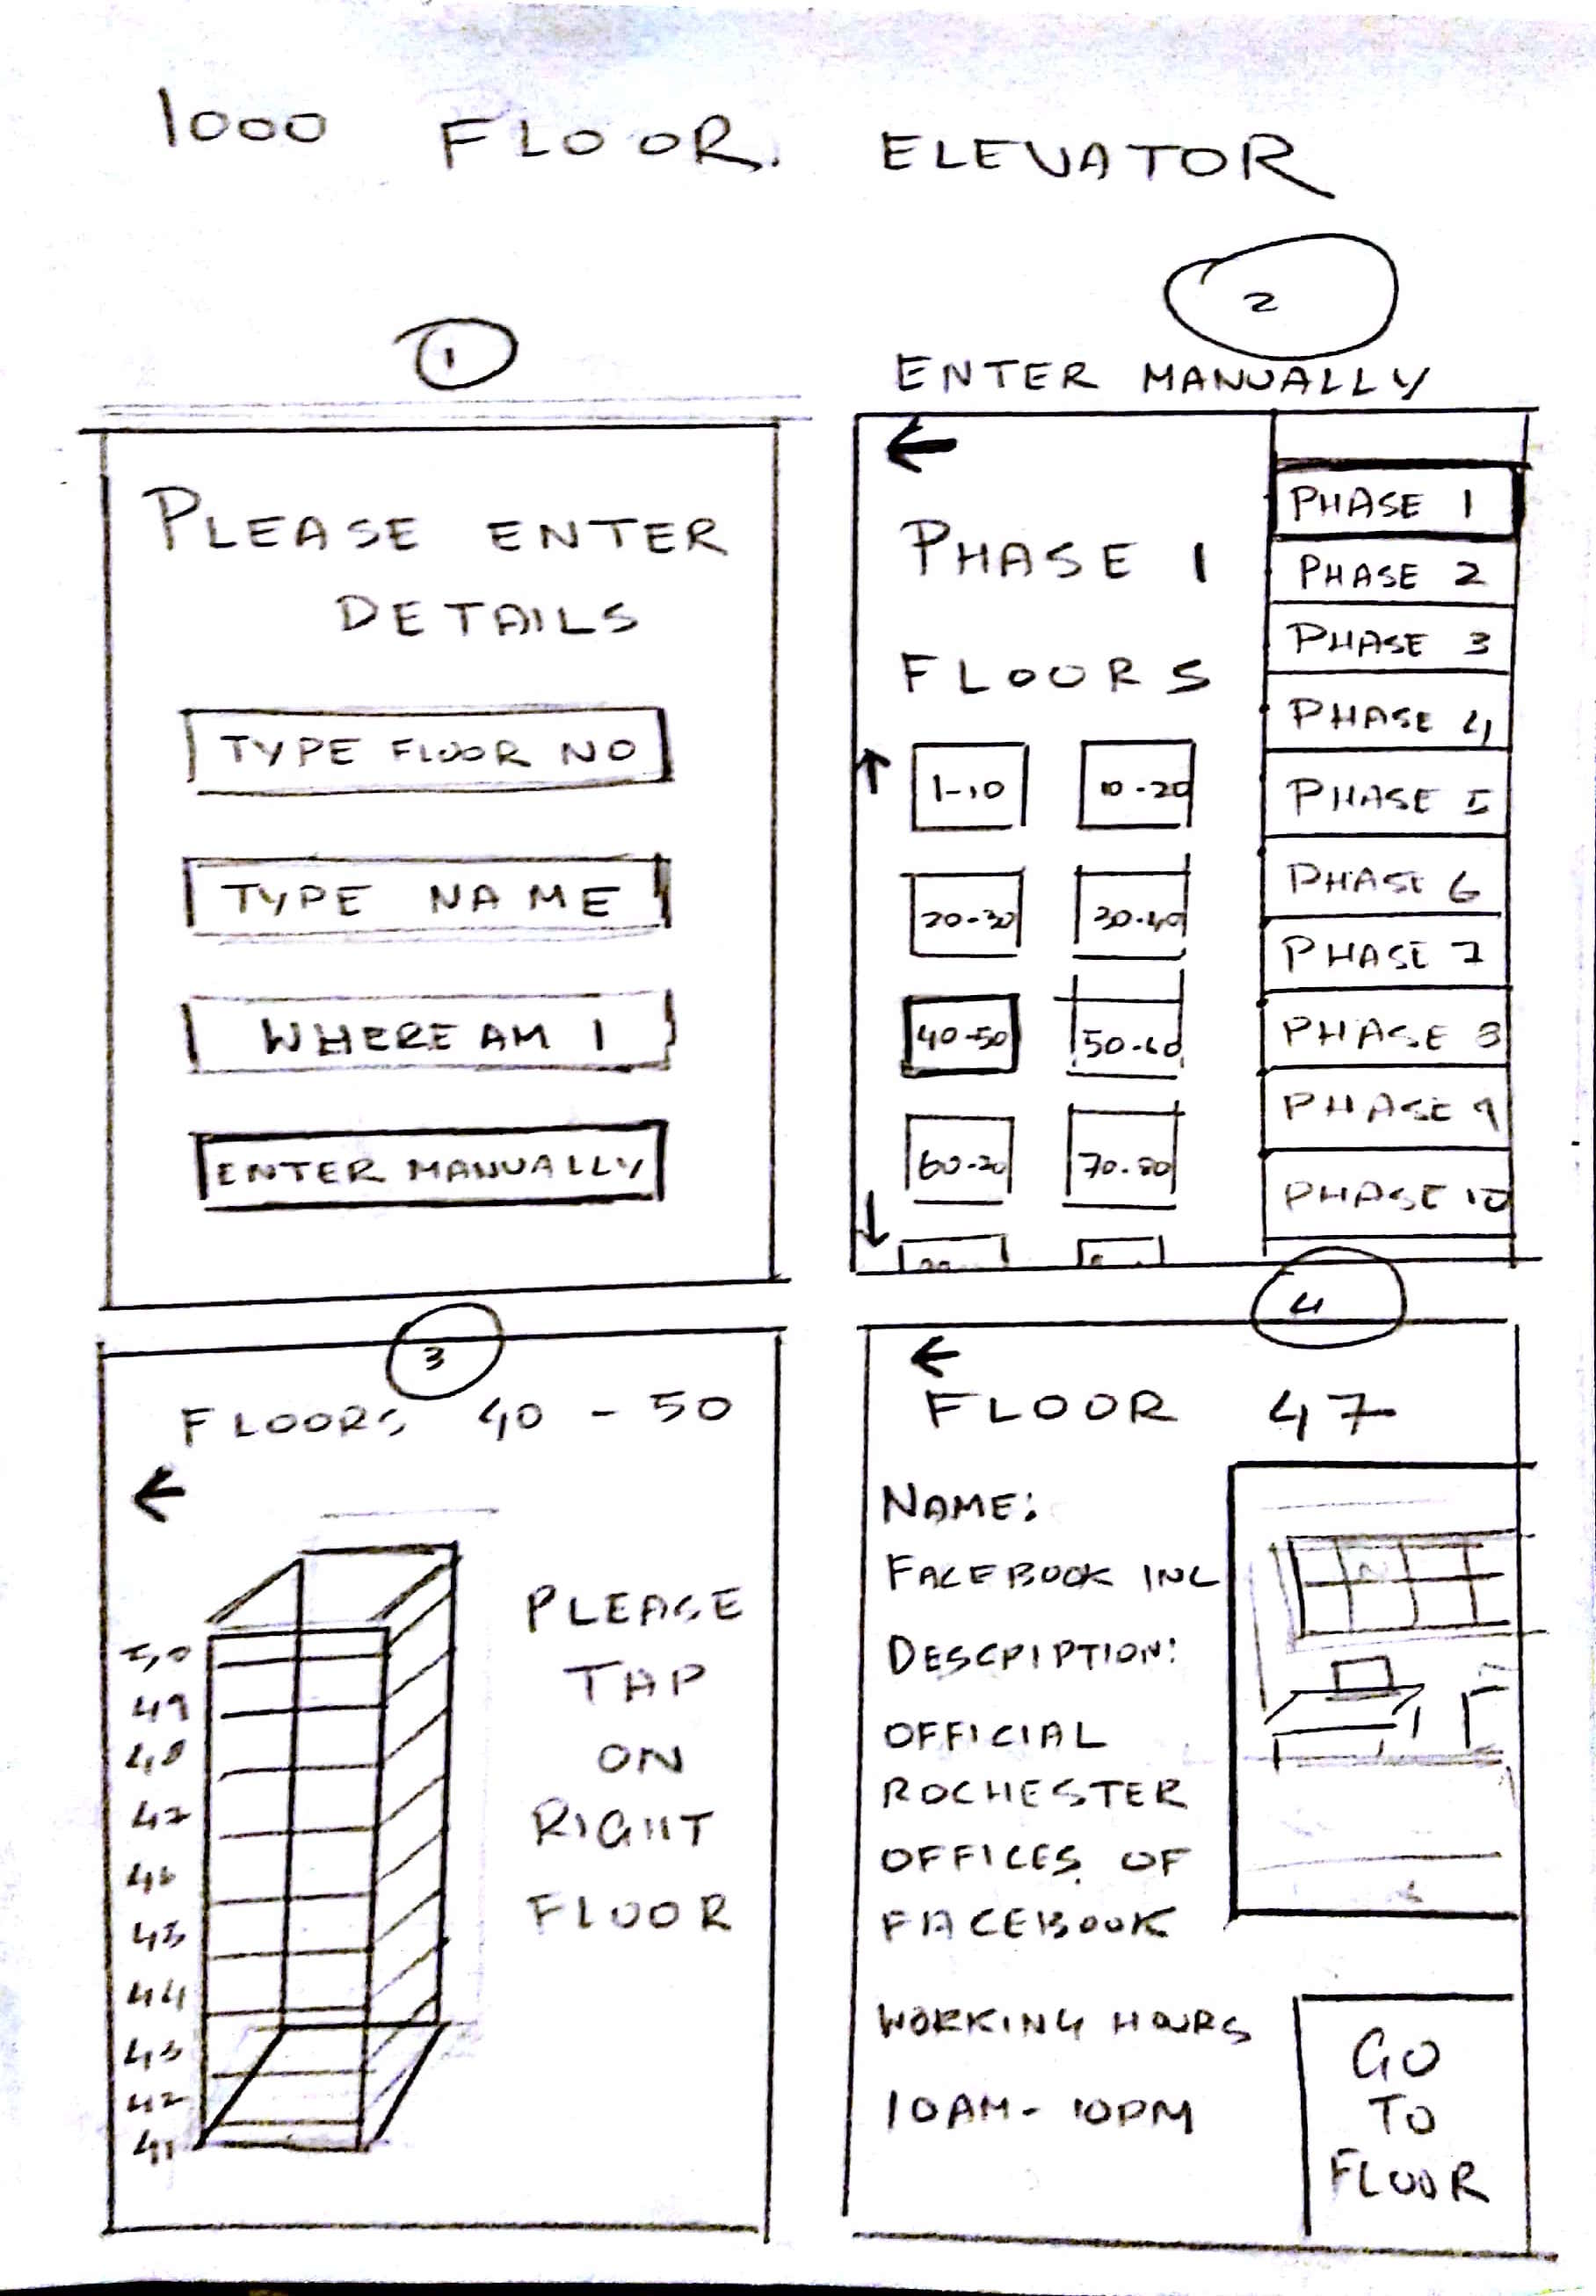 1000 FLOOR. ELEVATOR
1
PLEASE ENTER
DETAILS
TYPE FLOOR NO
TYPE NAME
WHERE AM I
ENTER MANUALLY
2
ENTER MANUALLY
←
PHASE 1
FLOORS
↑
1-10 10-20
20-30 30-40
40-50 50-60
60-70 70-80
↓
PHASE 1
PHASE 2
PHASE 3
PHASE 4
PHASE 5
PHASE 6
PHASE 7
PHASE 8
PHASE 9
PHASE 10
3
FLOORS 40 - 50
←
50
49
48
47
46
45
44
43
42
41
PLEASE
TAP
ON
RIGHT
FLOOR
4
←
FLOOR 47
NAME:
FACEBOOK INC
DESCRIPTION:
OFFICIAL
ROCHESTER
OFFICES OF
FACEBOOK
WORKING HOURS
10AM - 10PM
GO
TO
FLOOR